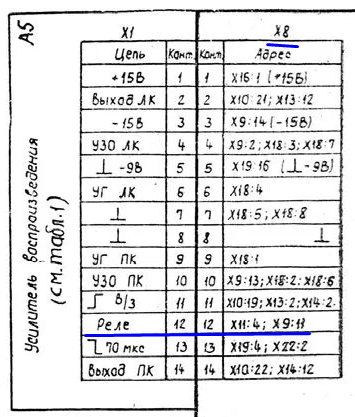 А5
Усилитель воспроизведения
(см. табл. 1)
X1 X8
Цепь Конт. Конт. Адрес
+15В 1 1 X16:1 (+15В)
Выход ЛК 2 2 X10:21; X13:12
-15В 3 3 X9:14 (-15В)
УЗО ЛК 4 4 X9:2; X18:3; X18:7
⊥ -9В 5 5 X19:16 (⊥-9В)
УГ ЛК 6 6 X18:4
⊥ 7 7 X18:5; X18:8
⊥ 8 8 ⊥
УГ ПК 9 9 X18:1
УЗО ПК 10 10 X9:13; X18:2; X18:6
В/З 11 11 X10:19; X13:2; X14:2.
Реле 12 12 X11:4; X9:11
70 мкс 13 13 X19:4; X22:2
Выход ПК 14 14 X10:22; X14:12